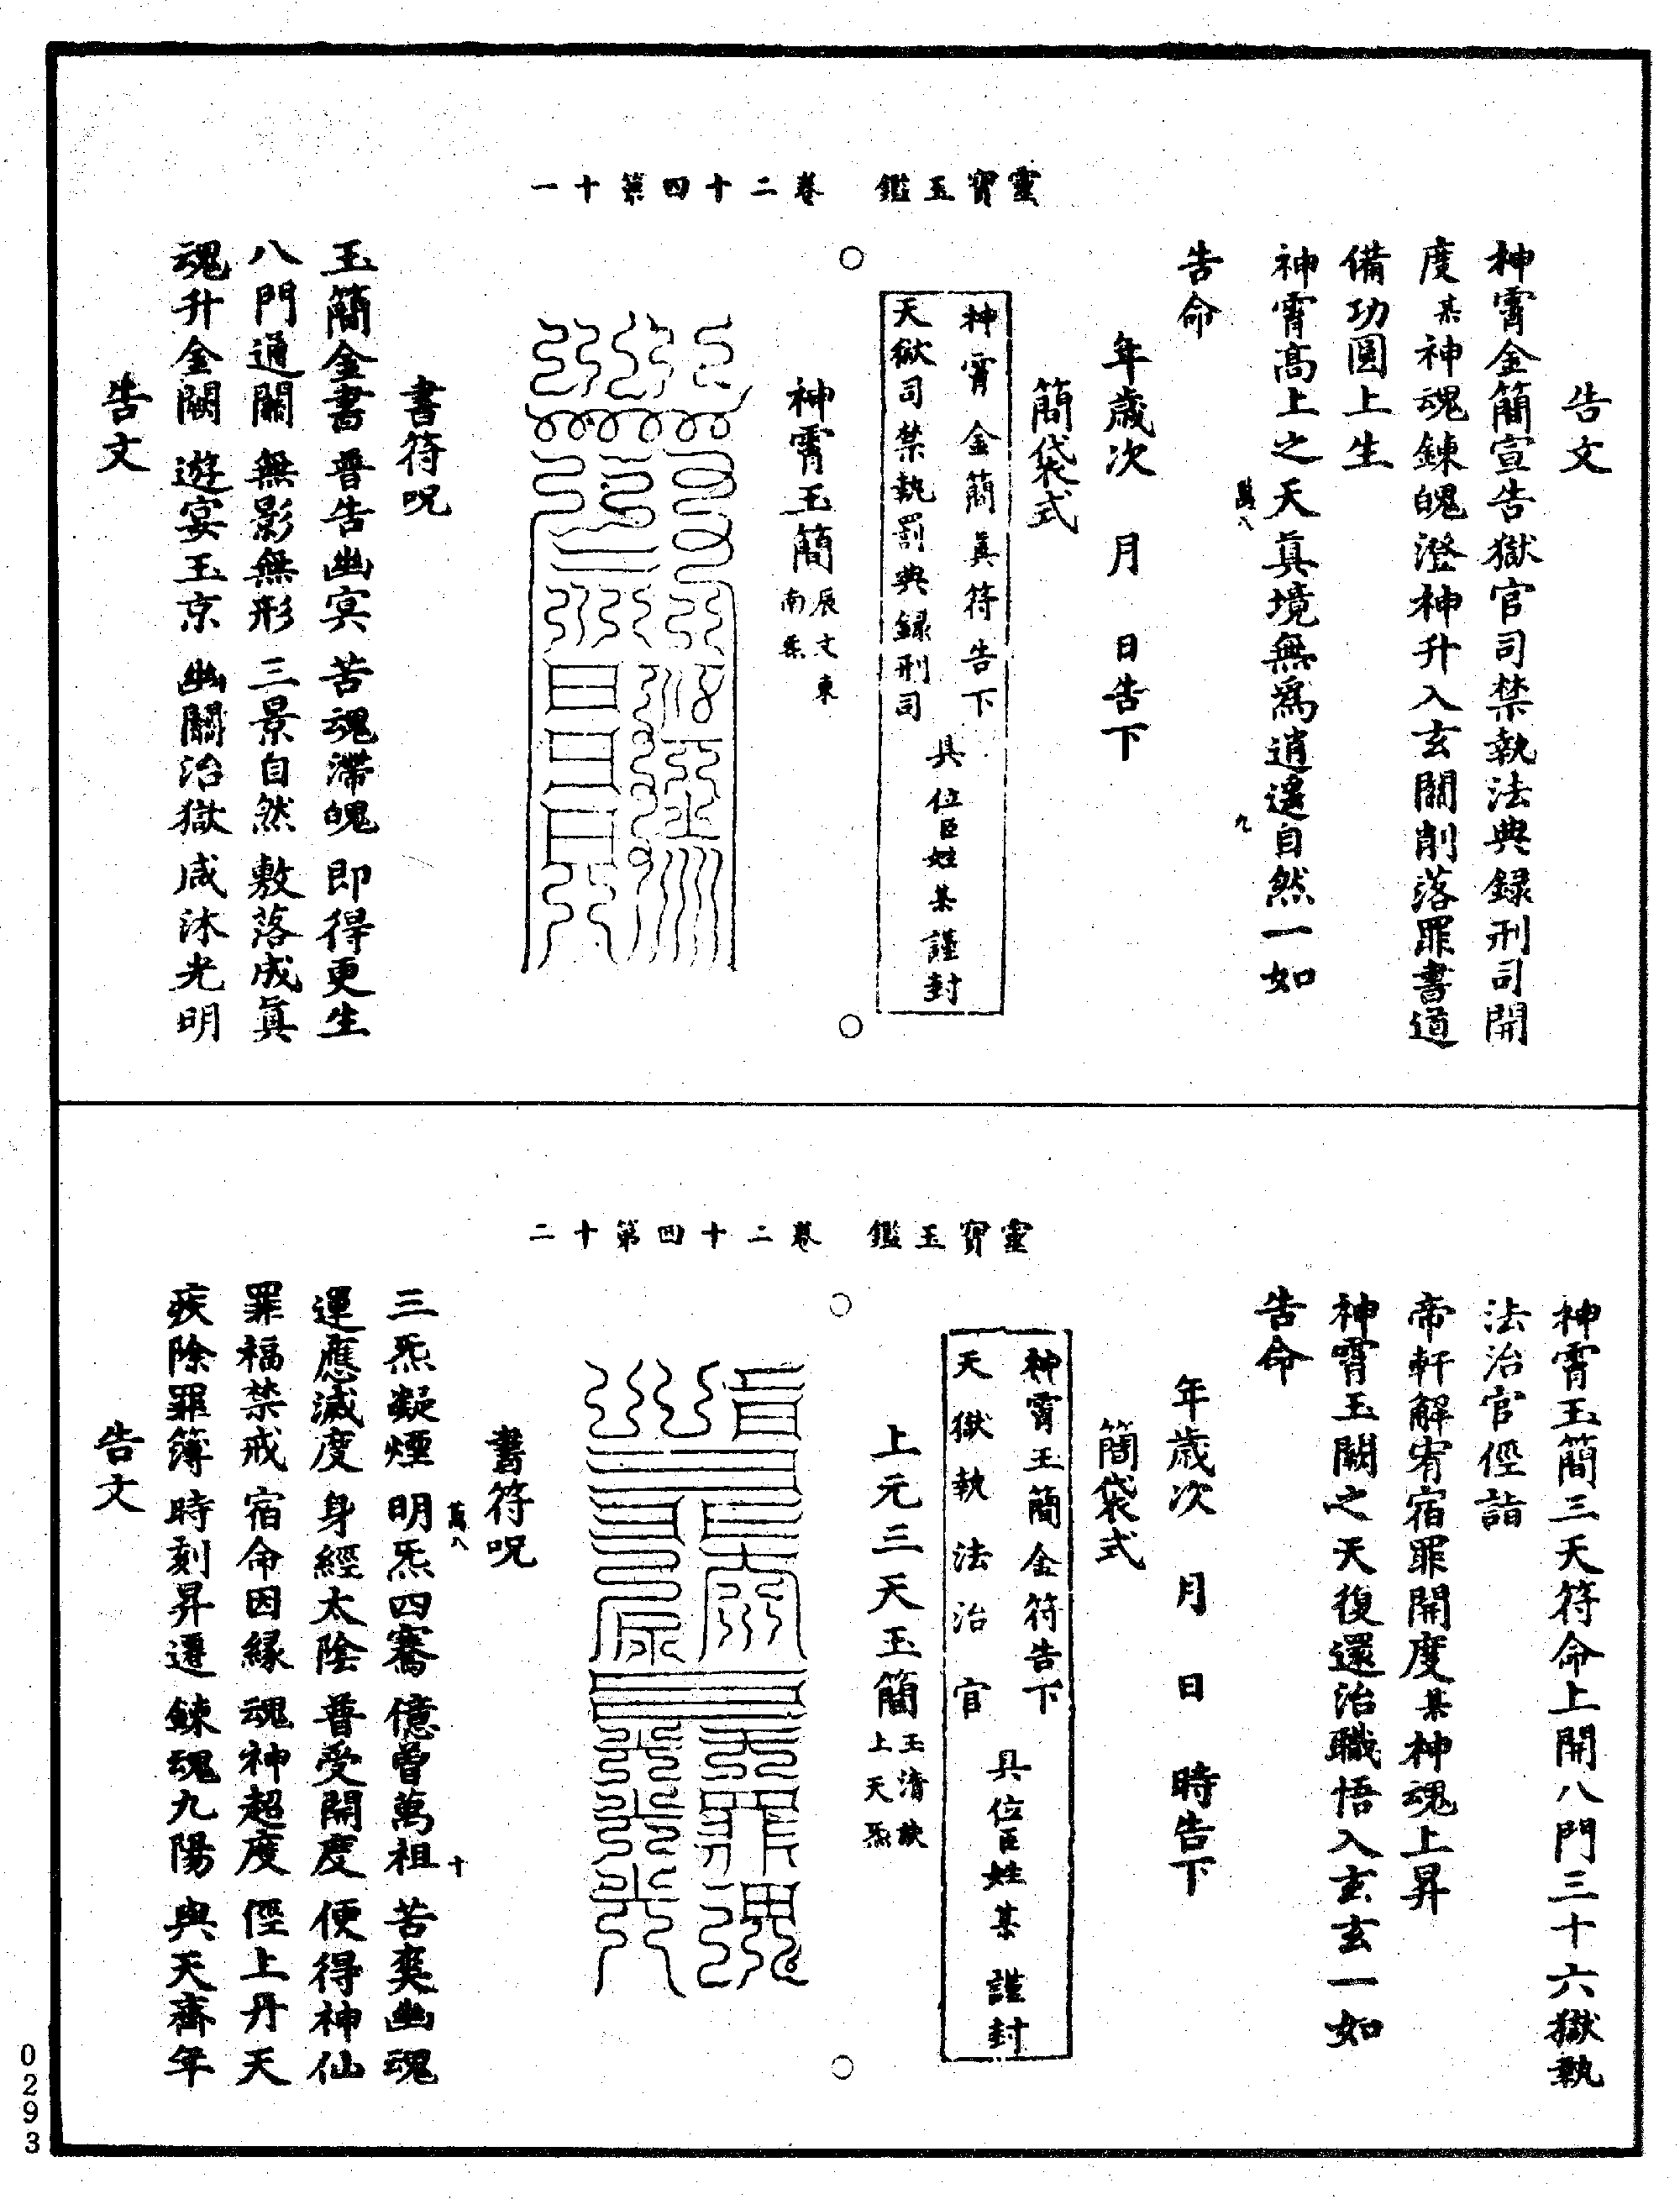 靈寶玉鑑 卷二十四第十一
告文
神霄金簡宣告獄官司禁執法典錄刑司開
度某神魂鍊魄澄神升入玄關削落罪書道
備功圓上生
神霄高上之天真境無為逍遙自然一如
萬八 九
告命
年歲次 月 日告下
簡袋式
神霄金簡真符告下
天獄司禁執罰典錄刑司
具位臣姓某謹封
神霄玉簡辰文東
南炁
書符呪
玉簡金書 普告幽冥 苦魂滯魄 即得更生
八門通關 無影無形 三景自然 敷落成真
魂升金闕 遊宴玉京 幽關治獄 咸沐光明
告文
靈寶玉鑑 卷二十四第十二
神霄玉簡三天符命上開八門三十六獄執
法治官徑詣
帝軒解宥宿罪開度某神魂上昇
神霄玉闕之天復還治職悟入玄玄一如
告命
年歲次 月 日 時告下
簡袋式
神霄玉簡金符告下
天獄執法治官
具位臣姓某謹封
上元三天玉簡玉清訣
上天炁
書符呪
萬八 十
三炁凝煙 明炁四騫 億曾萬祖 苦爽幽魂
運應滅度 身經太陰 普受開度 便得神仙
罪福禁戒 宿命因緣 魂神超度 徑上丹天
疾除罪簿 時刻昇遷 鍊魂九陽 與天齊年
告文
0293